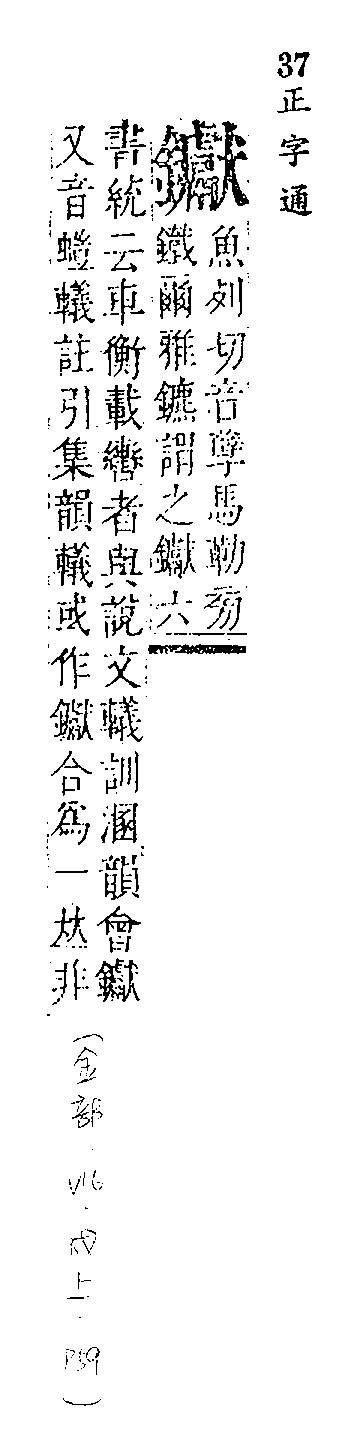 37正字通
钀
魚列切音孽馬勒旁
鐵爾雅鑣謂之钀六
書統云車衡載轡者與說文轙訓溷韻會钀
又音螘轙註引集韻轙或作钀合爲一𠀤非
(金部.V16.戌上.P59)